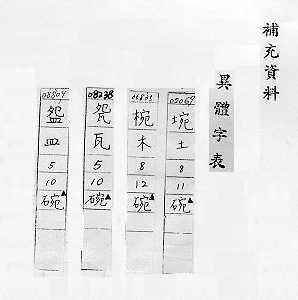 補充資料
異體字表
02069
埦
土
8
11
碗▲
椀
木
8
12
碗▲
08238
㼝
瓦
5
10
碗▲
盌
皿
5
10
碗▲